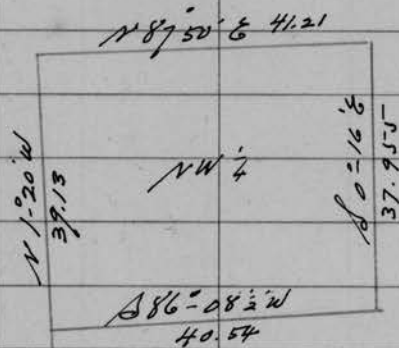 N 87° 50' E 41.21
N 1°-20' W
39.13
NW 1/4
S 0°-16' E
37.955
S 86°-08 1/2' W
40.54